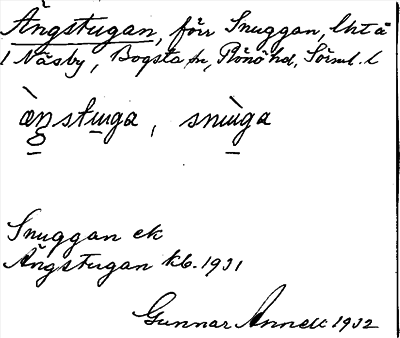 Ängstugan, förr Snuggan, lht å
1 Näsby, Bogsta sn, Rönö hd, Sörml. l
æ̀ŋstɯga, snɯ̀ga
Snuggan ek
Ängstugan kb. 1931
Gunnar Annell 1932